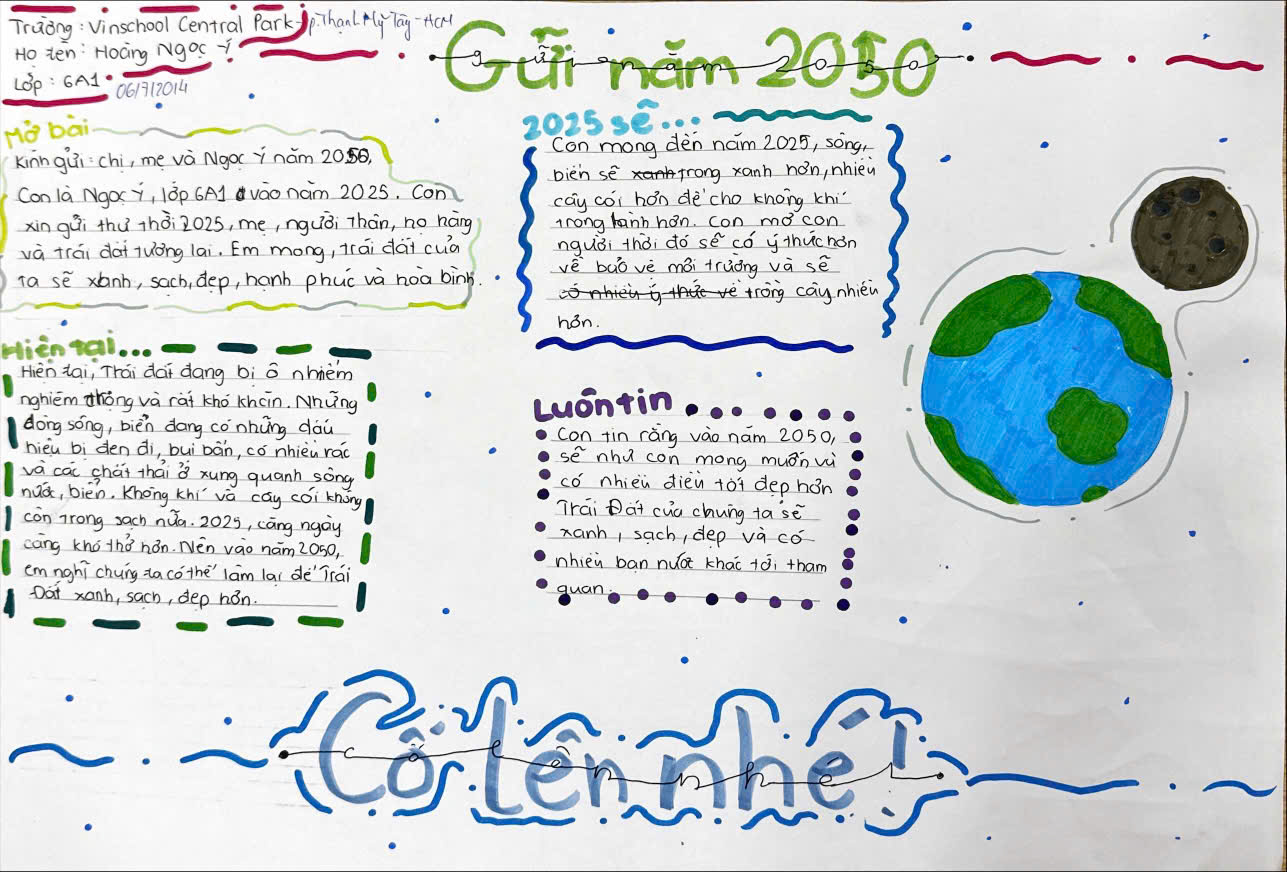 Trường : Vinschool Central Park - p. Thạnh Mỹ Tây - HCM
Họ tên : Hoàng Ngọc Ý
Lớp : 6A1
06/7/2014
Gửi năm 2050
gửi năm 2050
Mở bài
Kính gửi : chị, mẹ và Ngọc Ý năm 2050,
Con là Ngọc Ý, lớp 6A1 vào năm 2025. Con
xin gửi thư thời 2025, mẹ, người thân, họ hàng
và trái đất tương lai. Em mong, trái đất của
ta sẽ xanh, sạch, đẹp, hạnh phúc và hòa bình.
Hiện tại...
Hiện tại, Trái đất đang bị ô nhiễm
nghiêm trọng và rất khó khăn. Những
dòng sông, biển đang có những dấu
hiệu bị đen đi, bụi bẩn, có nhiều rác
và các chất thải ở xung quanh sông
nước, biển. Không khí và cây cối không
còn trong sạch nữa. 2025, càng ngày
càng khó thở hơn. Nên vào năm 2050,
em nghĩ chúng ta có thể làm lại để Trái
Đất xanh, sạch, đẹp hơn.
2025 sẽ...
Con mong đến năm 2025, sông,
biển sẽ xanh trong xanh hơn, nhiều
cây cối hơn để cho không khí
trong lành hơn. Con mơ con
người thời đó sẽ có ý thức hơn
về bảo vệ môi trường và sẽ
có nhiều ý thức về trồng cây nhiều
hơn.
Luôn tin
Con tin rằng vào năm 2050,
sẽ như con mong muốn và
có nhiều điều tốt đẹp hơn
Trái Đất của chúng ta sẽ
xanh, sạch, đẹp và có
nhiều bạn nước khác tới tham
quan.
Cố lên nhé!
cố lên nhé!